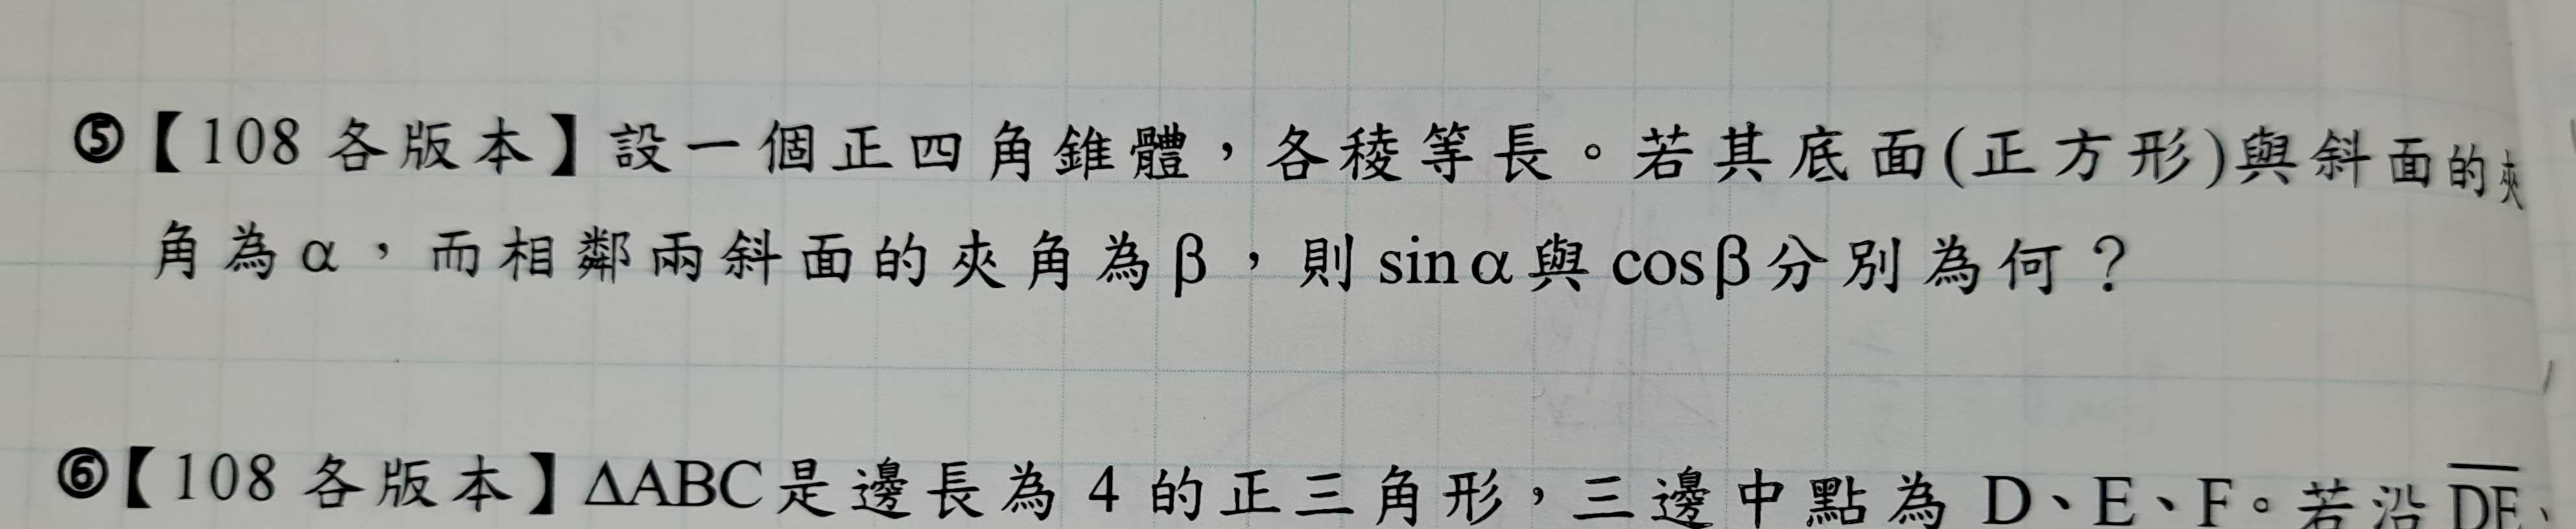 ❺【108 各版本】設一個正四角錐體，各稜等長。若其底面(正方形)與斜面的夾
角為α，而相鄰兩斜面的夾角為β，則 sinα與 cosβ分別為何？
❻【108 各版本】ΔABC是邊長為 4 的正三角形，三邊中點為 D、E、F。若沿